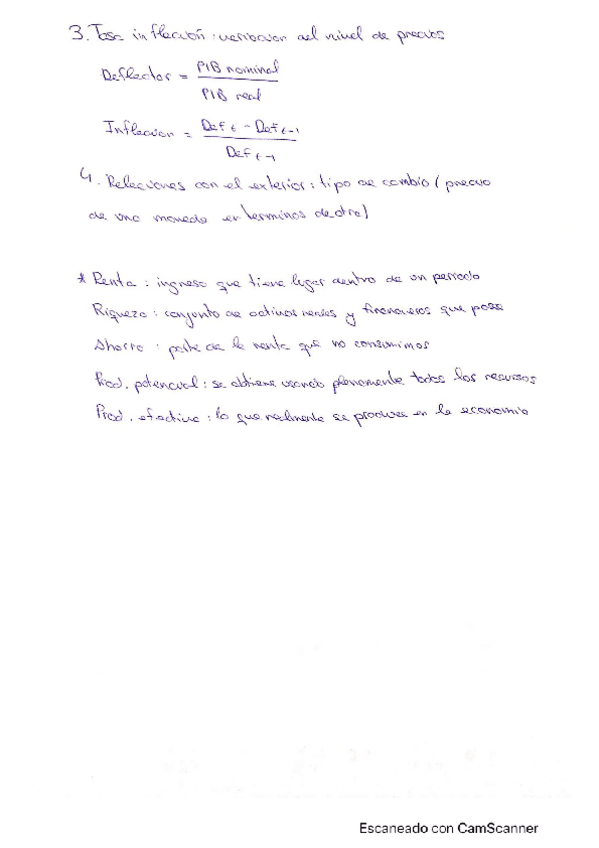 3. Tasa inflación: variacion del nivel de precios
Deflactor = PIB nominal / PIB real
Inflacion = Def t - Def t-1 / Def t-1
4. Relaciones con el exterior: tipo de cambio (precio
de una moneda en terminos de otra)
* Renta: ingreso que tiene lugar dentro de un periodo
Riqueza: conjunto de activos reales y financieros que posee
Ahorro: parte de la renta que no consumimos
Prod. potencial: se obtiene usando plenamente todos los recursos
Prod. efectiva: lo que realmente se produce en la economia
Escaneado con CamScanner